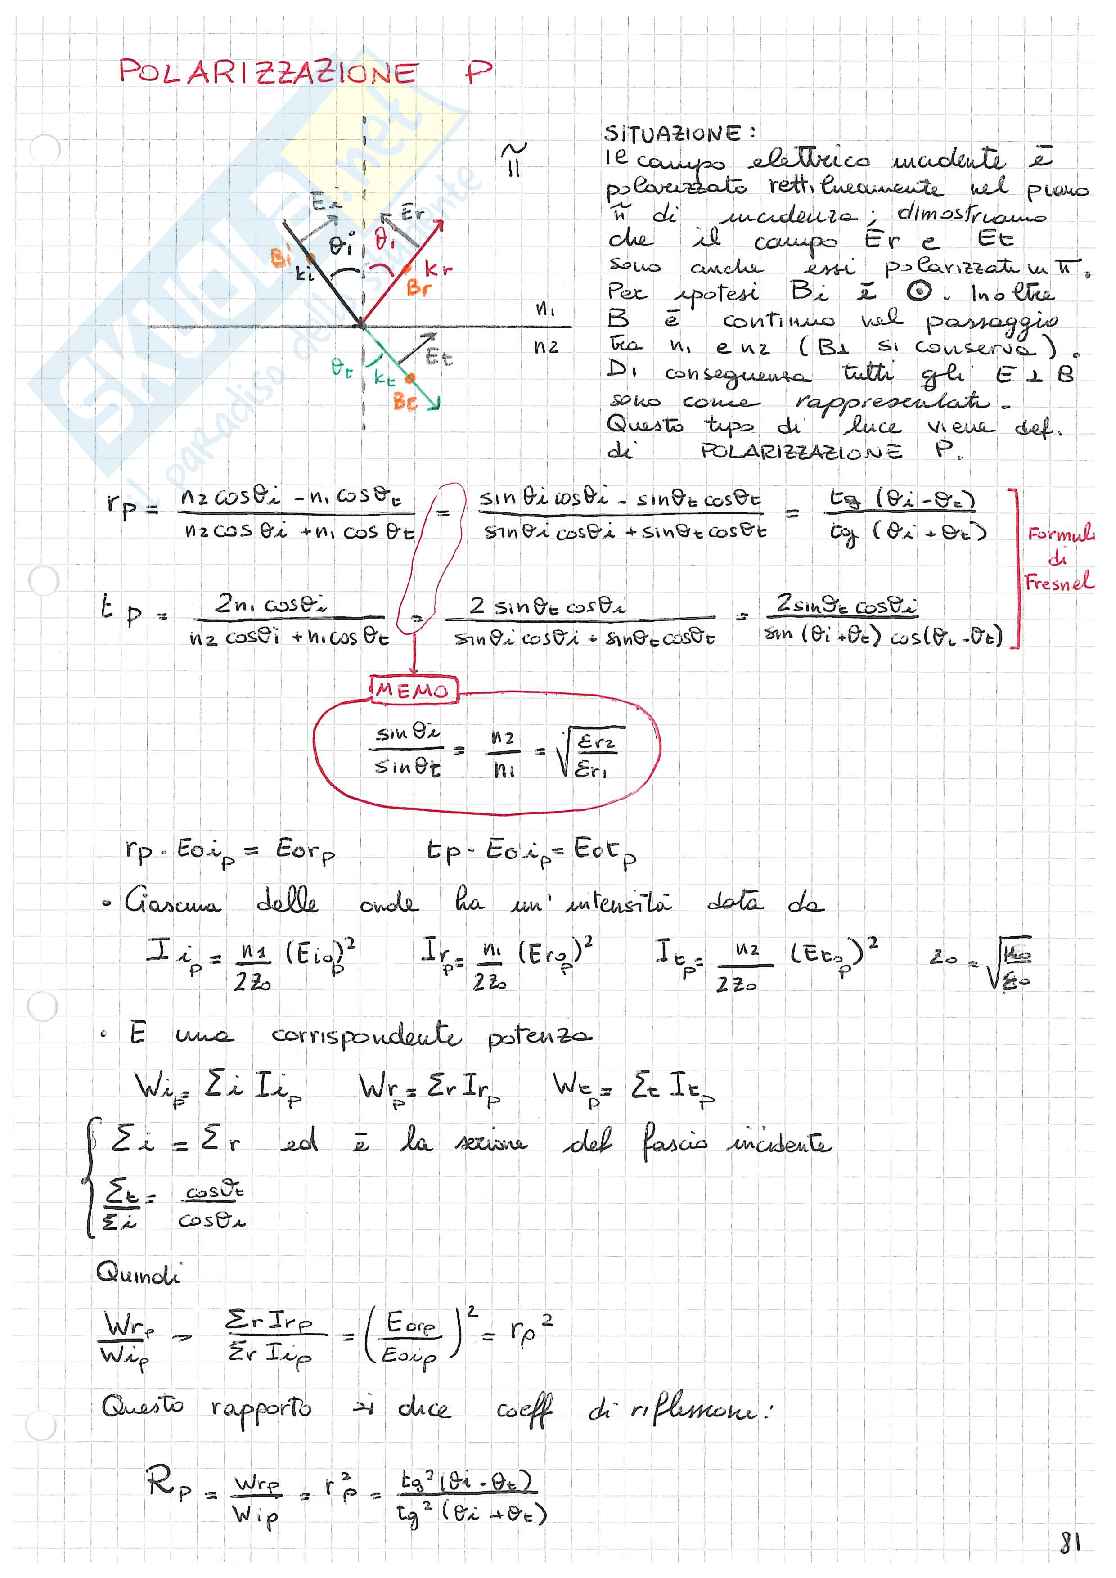 POLARIZZAZIONE P
SITUAZIONE:
Il campo elettrico incidente è
polarizzato rettilineamente nel piano
π̃ di incidenza; dimostriamo
che il campo Er e Et
sono anche essi polarizzati in π̃.
Per ipotesi Bi è ⊙. Inoltre
B è continuo nel passaggio
tra n1 e n2 (B⊥ si conserva).
Di conseguenza tutti gli E ⊥ B
sono come rappresentati.
Questo tipo di luce viene def.
di POLARIZZAZIONE P.
π̃
Ei Er
θi θi
Bi ki kr
Br
n1
n2
θt kt Et
Bt
rp = (n2 cosθi - n1 cosθt)/(n2 cosθi + n1 cosθt) = (sinθi cosθi - sinθt cosθt)/(sinθi cosθi + sinθt cosθt) = tg(θi-θt)/tg(θi+θt)
Formule di Fresnel
tp = 2n1 cosθi/(n2 cosθi + n1 cosθt) = 2 sinθt cosθi/(sinθi cosθi + sinθt cosθt) = 2 sinθt cosθi/(sin(θi+θt) cos(θi-θt))
MEMO
sinθi/sinθt = n2/n1 = √(εr2/εr1)
rp · Eoip = Eorp tp · Eoip = Eotp
• Ciascuna delle onde ha un'intensità data da
Iip = n1/2Z0 (Eiop)² Irp = n1/2Z0 (Erop)² Itp = n2/2Z0 (Etop)² Z0 = √(μ0/ε0)
• E una corrispondente potenza
Wip = Σi Iip Wrp = Σr Irp Wtp = Σt Itp
Σi = Σr ed è la sezione del fascio incidente
Σt/Σi = cosθt/cosθi
Quindi
Wrp/Wip = Σr Irp/Σr Iip = (Eorp/Eoip)² = rp²
Questo rapporto si dice coeff di riflessione:
Rp = Wrp/Wip = rp² = tg²(θi-θt)/tg²(θi+θt)
81
SKUOLA.net
il paradiso dello studente